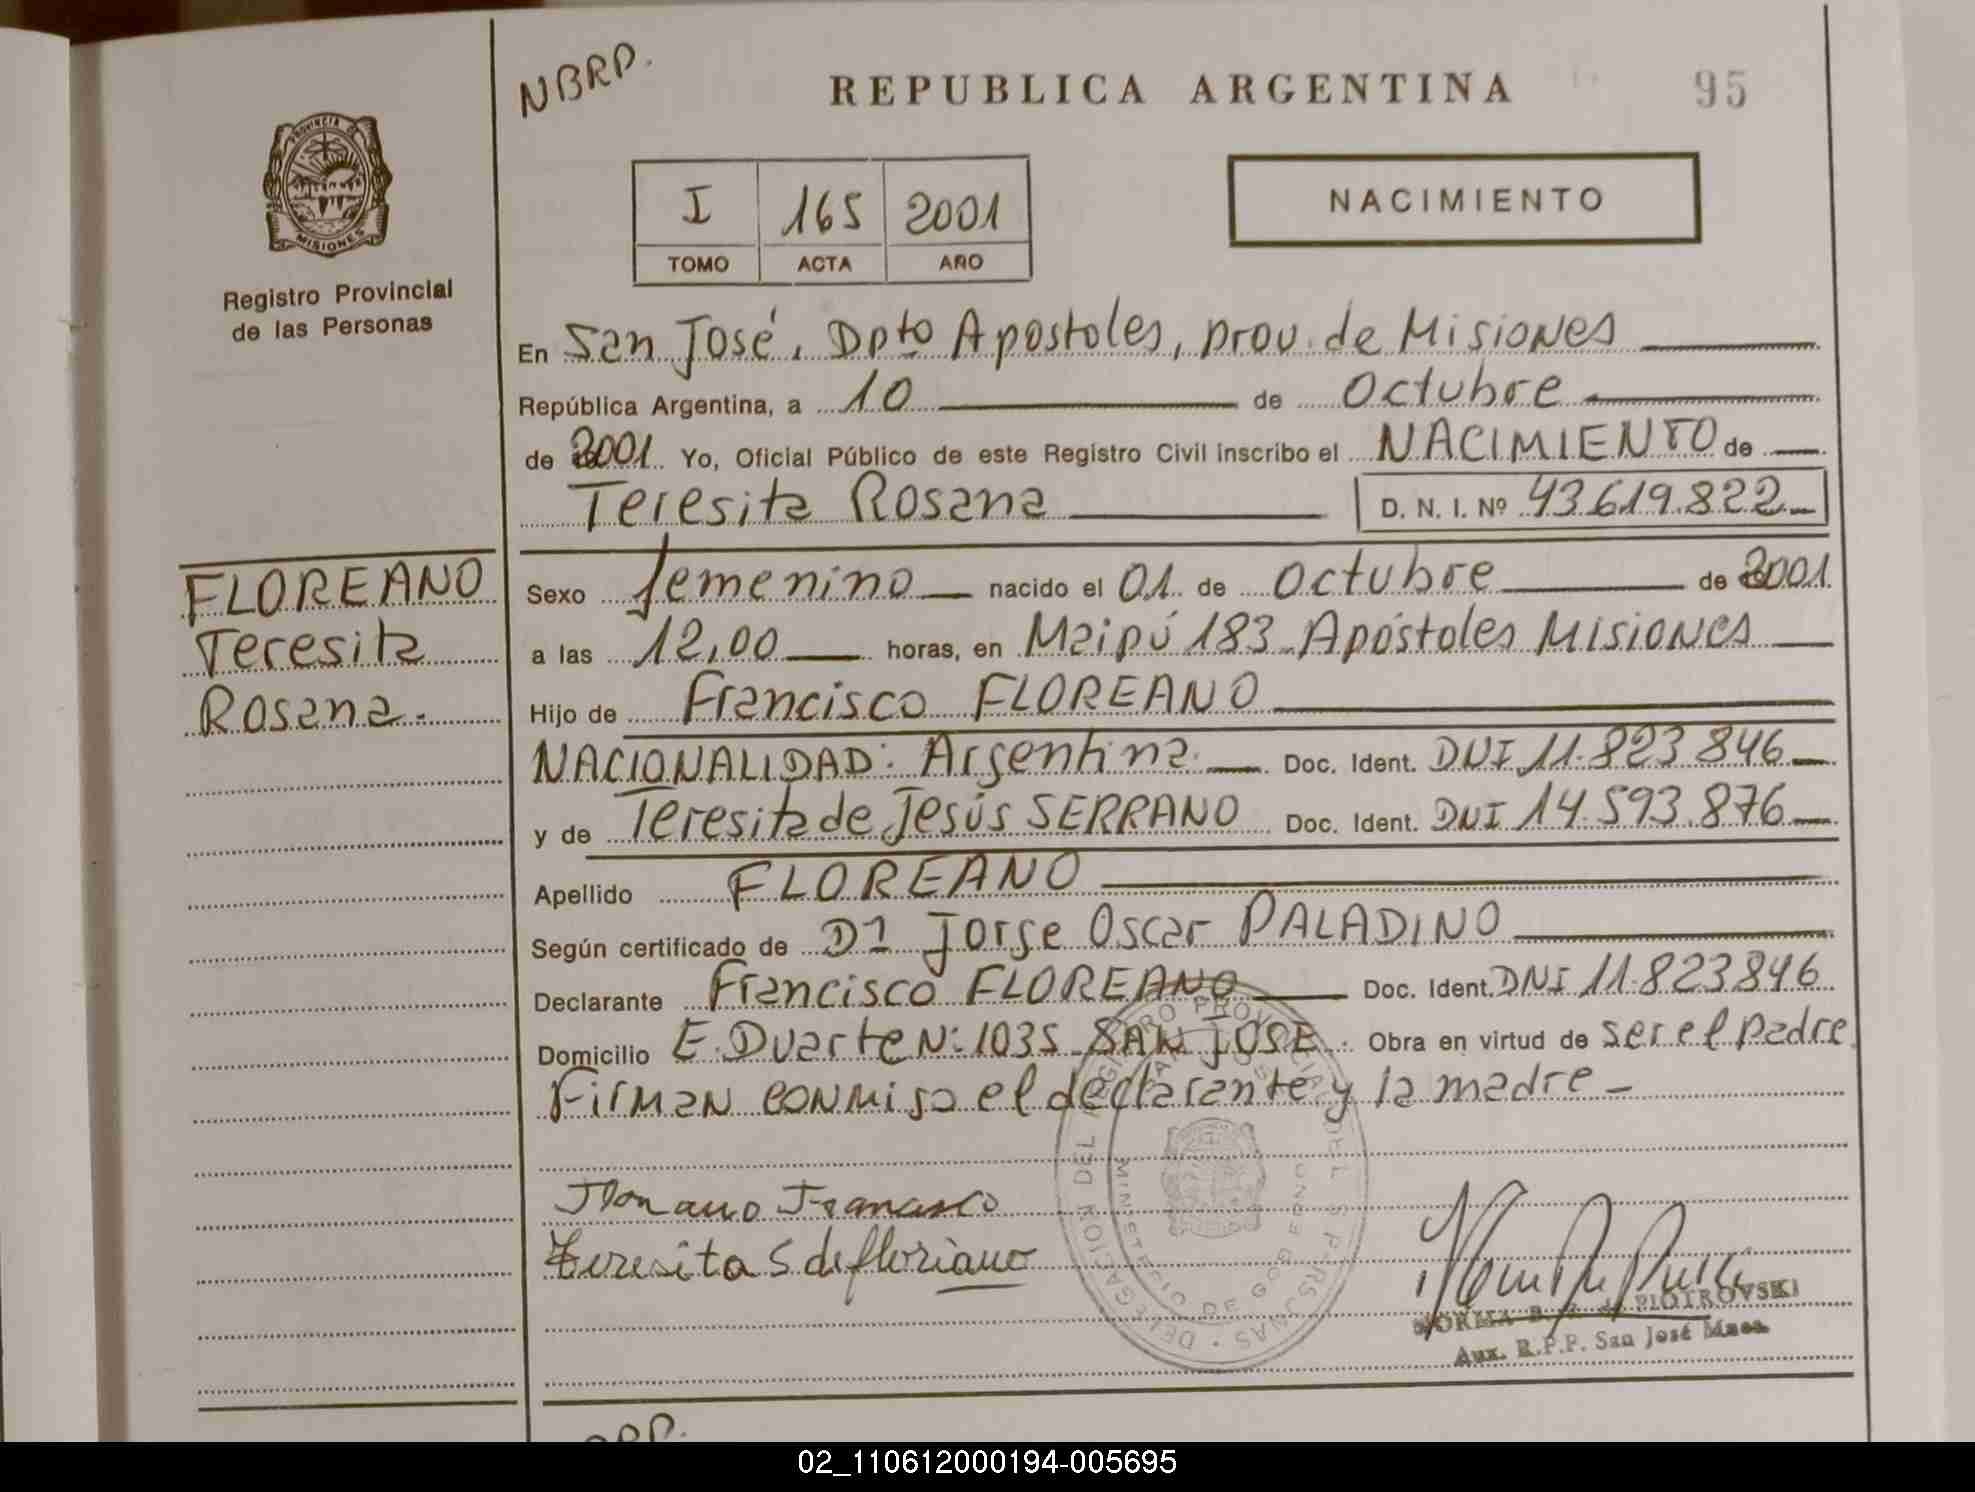 NBRP.
REPUBLICA ARGENTINA 95
PROVINCIA DE
MISIONES
Registro Provincial
de las Personas
I 165 2001
TOMO ACTA AÑO
NACIMIENTO
En San José, Dpto Apostoles, prov. de Misiones
República Argentina, a 10 de Octubre
de 2001 Yo, Oficial Público de este Registro Civil inscribo el NACIMIENTO de
Teresita Rosana D. N. I. Nº 43.619.822
FLOREANO
Teresita
Rosana.
Sexo femenino nacido el 01 de Octubre de 2001
a las 12,00 horas, en Maipú 183 Apóstoles Misiones
Hijo de Francisco FLOREANO
NACIONALIDAD: Argentina Doc. Ident. DNI 11.823 846
y de Teresita de Jesús SERRANO Doc. Ident. DNI 14.593.876
Apellido FLOREANO
Según certificado de Jorge Oscar PALADINO
Declarante Francisco FLOREANO Doc. Ident. DNI 11.823846
Domicilio E. Duarte Nº: 1035 SAN JOSE. Obra en virtud de ser el padre.
Firman conmigo el declarante y la madre
Francisco
Teresita S de floriano
DELEGACION DEL REGISTRO PROVINCIAL DE LAS PERSONAS
MINISTERIO DE GOBIERNO
NORMA B. de PIOTROVSKI
Aux. R.P.P. San José Mnes.
02_110612000194-005695